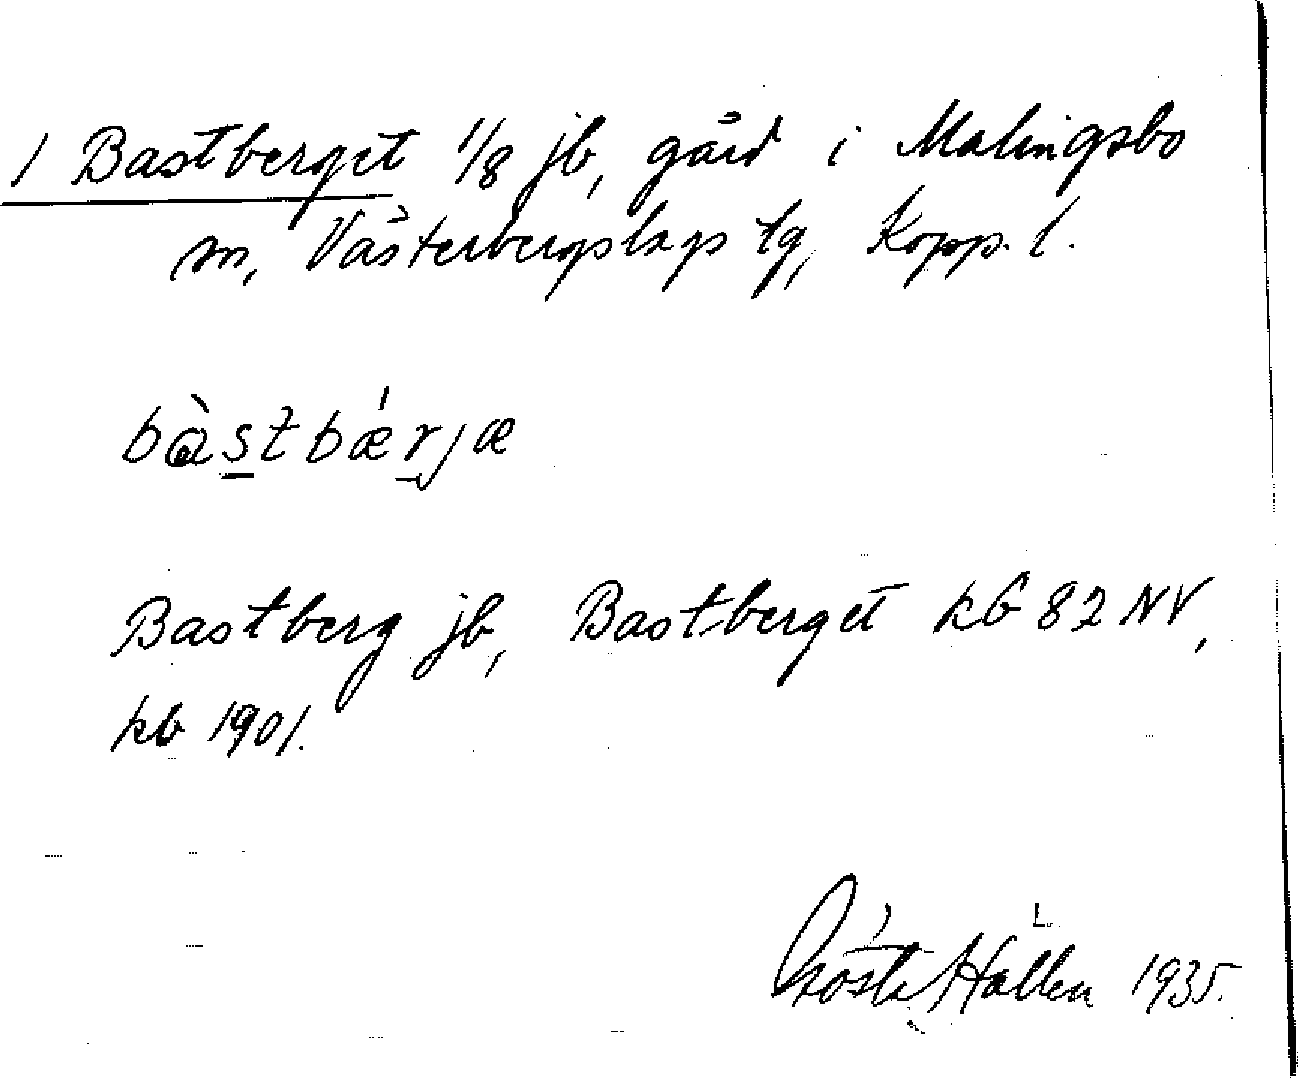 1 Bastberget 1/8 jb, gård i Malingsbo
sn, Västerbergslags tg, Kopp. l.
bàstbǽrjæ
Bastberg jb, Bastberget kb 82 NV,
kb 1901.
Gösta Hallén 1935.